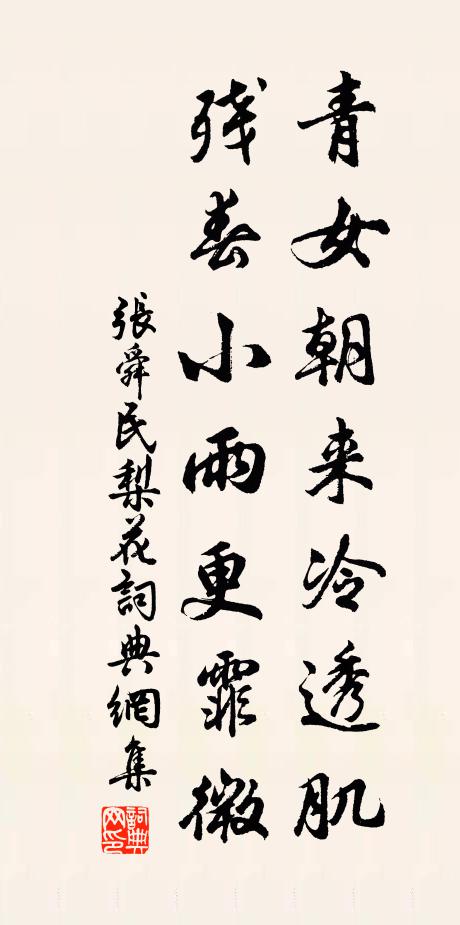 青女朝来冷透肌
残春小雨更霏微
張舜民梨花詞典網集
詞典網印